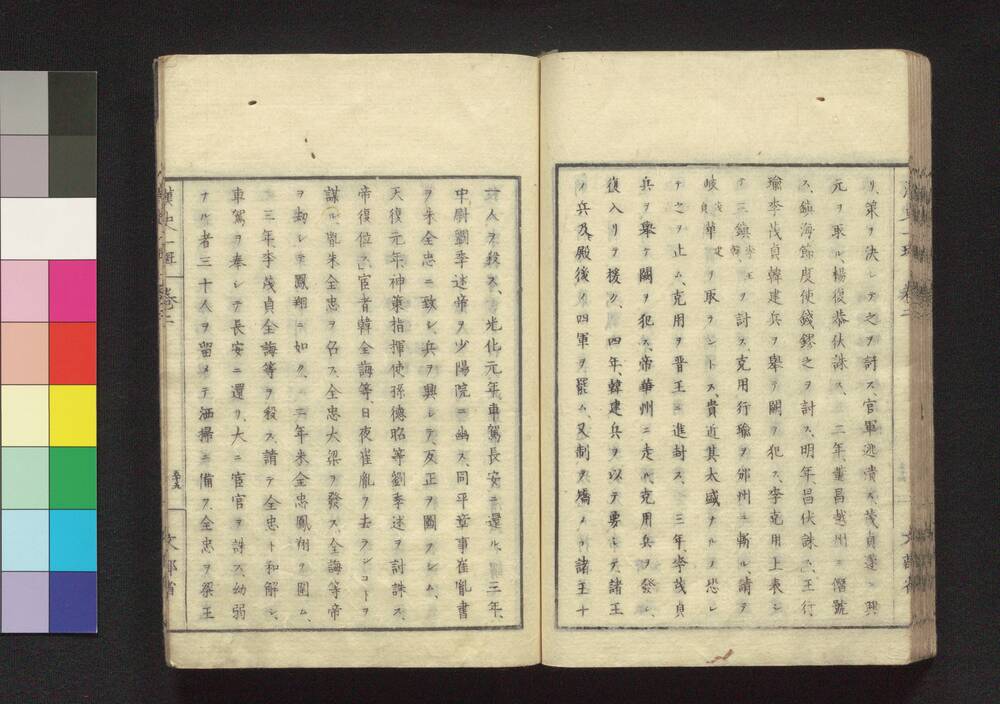 リ、策ヲ決シテ之ヲ討ス、官軍逃潰ス、茂貞遂ニ興
元ヲ取ル、楊復恭伏誅ス、二年、董昌越州ニ僭號
ス、鎮海節度使錢鏐之ヲ討ス、明年、昌伏誅ス、王行
瑜李茂貞韓建兵ヲ舉テ闕ヲ犯ス、李克用上表シ
テ三鎮ヲ討ス、克用行瑜ヲ邠州ニ斬ル、請ヲ
岐華ヲ取ラントス、貴近其太盛ナルヲ恐レ
テ之ヲ止ム、克用ヲ晉王ニ進封ス、三年、李茂貞
兵ヲ舉ケ闕ヲ犯ス、帝華州ニ走ル、克用兵ヲ發シ、
復入リヲ援ク、四年、韓建兵ヲ以テ要シテ諸王
ノ兵及殿後ノ四軍ヲ罷ム、又制ヲ矯メテ諸王十
一人ヲ殺ス、光化元年、車駕長安ニ還ル、三年、
中尉劉季述帝ヲ少陽院ニ幽ス、同平章事崔胤書
ヲ朱全忠ニ致シ、兵ヲ興シテ、反正ヲ圖ラシム、
天復元年、神策指揮使孫德昭等劉季述ヲ討誅ス、
帝復位ス、宦者韓全誨等、日夜崔胤ヲ去ランコトヲ
謀ル、胤朱全忠ヲ召ス、全忠大梁ヲ發ス、全誨等帝
ヲ劫シテ鳳翔ニ如ク、二年朱全忠鳳翔ヲ圍ム、
三年李茂貞全誨等ヲ殺ス、請テ全忠ト和解シ、
車駕ヲ奉シテ長安ニ還リ、大ニ宦官ヲ誅ス、幼弱
ナル者三十人ヲ留メテ洒掃ニ備フ、全忠ヲ梁王
漢史一班 卷二 文部省